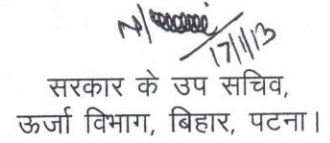 17/1/13
सरकार के उप सचिव,
ऊर्जा विभाग, बिहार, पटना।